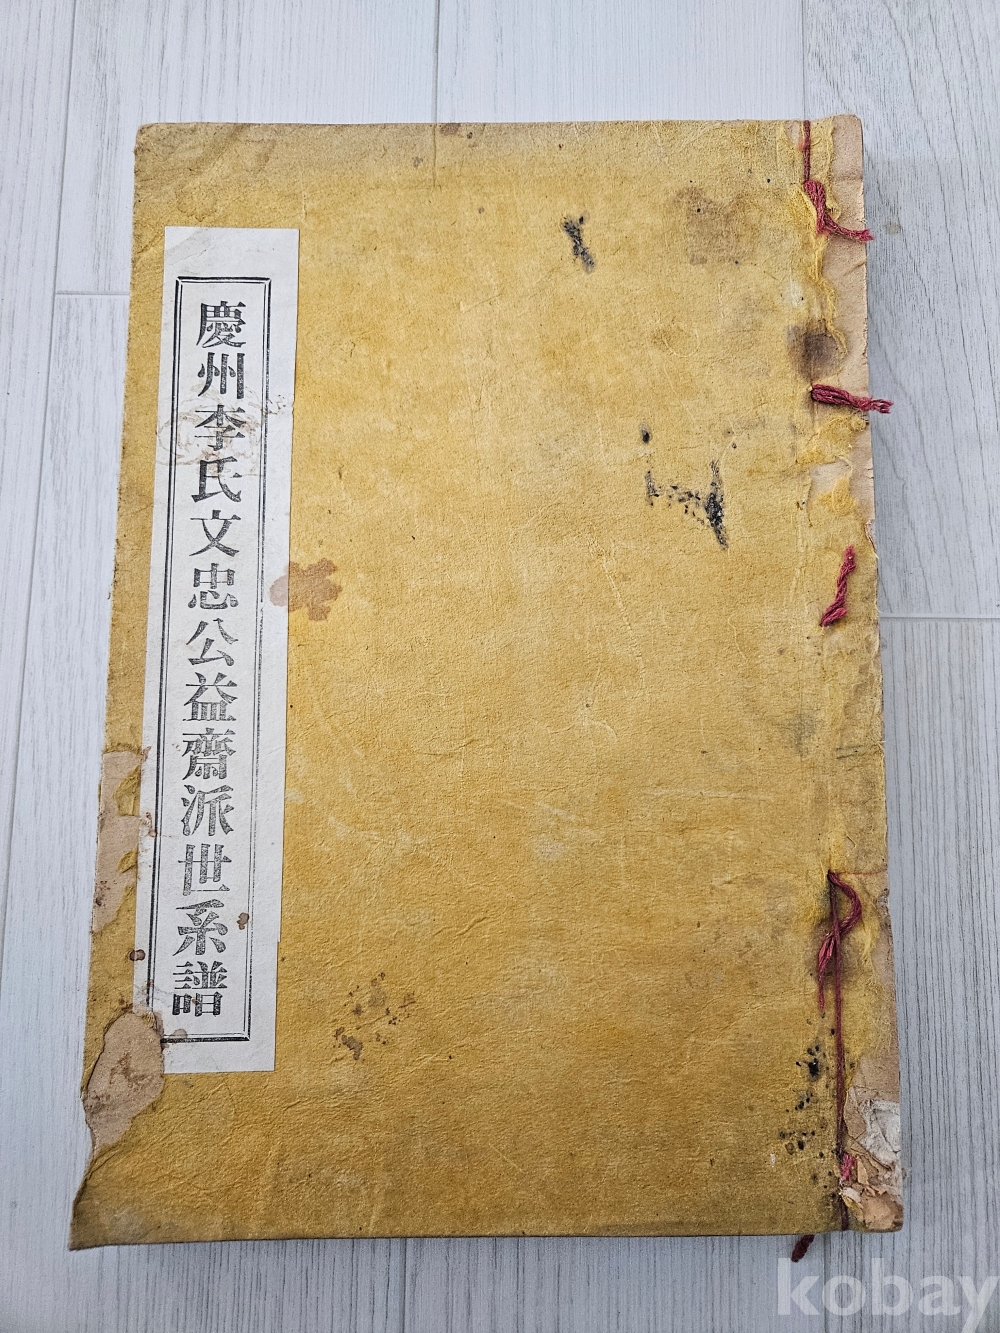 慶州李氏文忠公益齋派世系譜
kobay